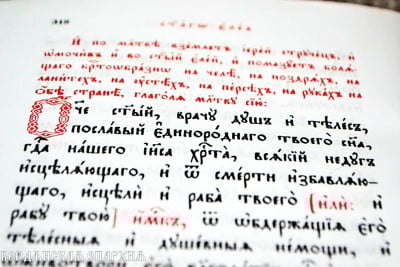 с҃та́гѡ є҆ле́а
И҆ по мл҃твѣ взе́млетъ і҆ере́й стрꙋче́цъ, и҆
ѡ҆мочи́въ и҆̀ во ст҃ы́й є҆ле́й, и҆ помазꙋ́етъ болѧ́-
щаго крⷭ҇тоѻбра́знѡ на челѣ̀, на ноздрѧ́хъ, на
лани́тѣхъ, на ᲂу҆стѣ́хъ, на пе́рсѣхъ, на рꙋка́хъ на
ѻ҆́бѣ странѣ̑, глаго́лѧ мл҃твꙋ сїю̀:
Ѻ҆́ч҃е ст҃ы́й, врачꙋ̀ дꙋ́шъ и҆ тѣле́съ,
посла́вый є҆диноро́днаго твоего̀ сн҃а,
гдⷭ҇а на́шего і҆и҃са хрⷭ҇та̀, всѧ́кїй недꙋ́гъ
и҆сцѣлѧ́ющаго, и҆ ѿ сме́рти и҆збавлѧ́ю-
щаго, и҆сцѣлѝ и҆ раба̀ твоего̀ [и҆лѝ:
рабꙋ̀ твою̀] и҆́м҃къ, ѿ ѡ҆бдержа́щїѧ є҆го̀
тѣле́сныѧ и҆ дꙋше́вныѧ не́мощи, и҆